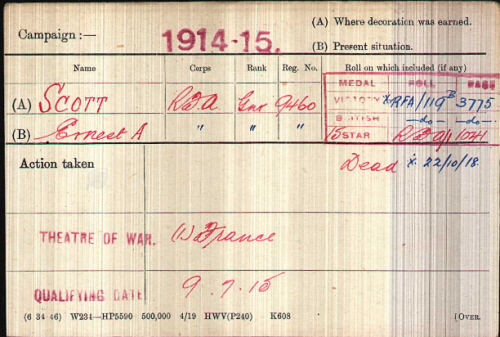 (A) Where decoration was earned.
Campaign :— 1914-15.
(B) Present situation.
Name Corps Rank Reg. No. Roll on which included (if any)
MEDAL ROLL PAGE
(A) SCOTT RFA Gnr 9460 VICTORY X RFA/119B 3775
BRITISH —do— —do—
(B) Ernest A " " " 15 STAR RFA/ 1021
Action taken Dead X. 22/10/18.
THEATRE OF WAR. (1) France
QUALIFYING DATE 9.7.15
(6 34 46) W234—HP5590 500,000 4/19 HWV(P240) K608 [OVER.